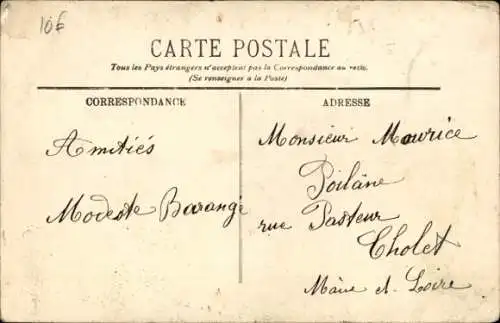 10€
CARTE POSTALE
Tous les Pays étrangers n'acceptent pas la Correspondance au recto.
(Se renseigner à la Poste)
CORRESPONDANCE
ADRESSE
Amitiés
Modeste Barangé
Monsieur Maurice
Poilâne
rue Pasteur
Cholet
Maine et Loire